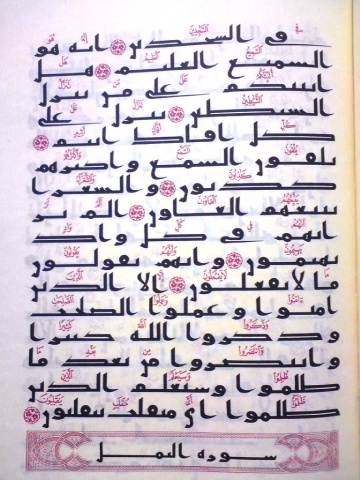 فى السجدين انه هو
السميع العليم هل
انبئكم على من تنزل
الشيطين تنزل على
كل افاك اثيم
يلقون السمع واكثرهم
كذبون والشعرا
يتبعهم الغاون الم تر
انهم فى كل واد
يهيمون وانهم يقولون
ما لا يفعلون الا الذين
امنوا وعملوا الصلحت
وذكروا الله كثيرا
وانتصروا من بعد ما
ظلموا وسيعلم الذين
ظلموا اى منقلب ينقلبون
سورة النمل